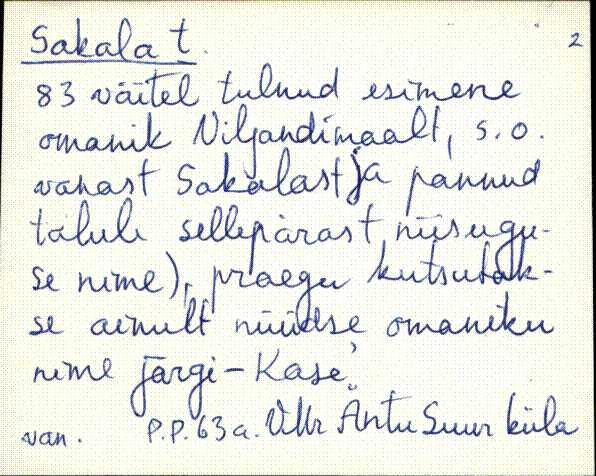 Sakala t. 2
83 väitel tulnud esimene
omanik Viljandimaalt, s.o.
vanast Sakalast ja pannud
talule sellepärast niisugu-
se nime), praegu kutsutak-
se ainult nüüdse omaniku
nime järgi - Kase.
van. P.P. 63 a. VMr Äntu Suur küla